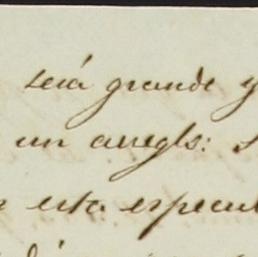 será grande y
un arreglo:
esta especul